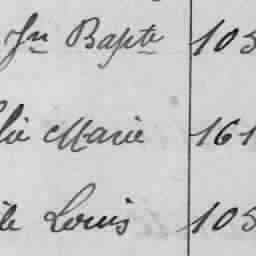 Jn Bapte 105
lie Marie 161
ile Louis 105